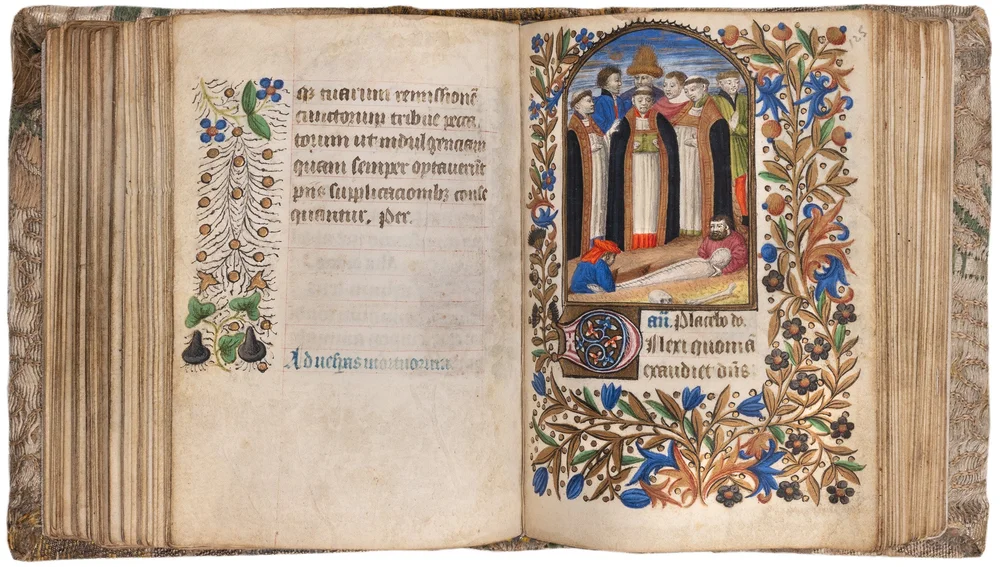 qȝ tuarum remissionē
cunctorum tribue pecca
torum ut indulgenciam
quam semper optauerūt
piis supplicacionibȝ conse
quantur. Per.
Ad uesp̄as mortuorum
125
an̄. Placebo do.
Dilexi quoniā
exaudiet dn̄s